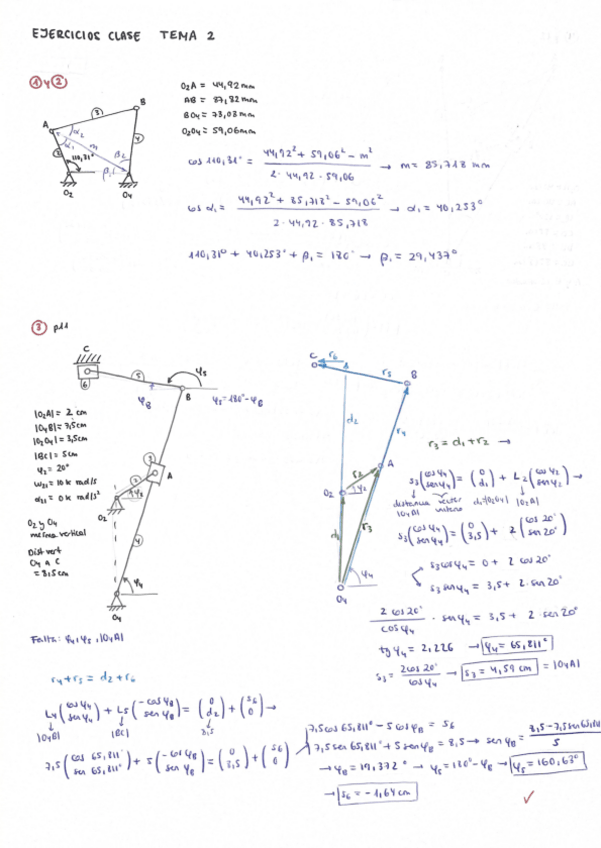 EJERCICIOS CLASE TEMA 2
① y ②
O2A = 44,92 mm
AB = 87,32 mm
BO4 = 73,03 mm
O2O4 = 59,06 mm
A
B
3
α2
α1
m
β2
4
2
110,31°
β1
O2
O4
cos 110,31° = (44,92² + 59,06² - m²) / (2 · 44,92 · 59,06) → m = 85,718 mm
cos α1 = (44,92² + 85,718² - 59,06²) / (2 · 44,92 · 85,718) → α1 = 40,253°
110,31° + 40,253° + β1 = 180° → β1 = 29,437°
③ p11
C
6
5
φ5
φB
B
φ5 = 180° - φB
|O2A| = 2 cm
|O4B| = 7,5cm
|O2O4| = 3,5cm
|BC| = 5cm
φ2 = 20°
ω21 = 10 k rad/s
α21 = 0 k rad/s²
O2 y O4 misma vertical
Dist vert O4 a C = 8,5cm
3
A
2
φ2
O2
4
φ4
O4
Falta: φ4, φ5, |O4A|
C
r6
r5
B
d2
r4
r2
A
O2
φ2
d1
r3
φ4
O4
r3 = d1 + r2 →
s3 (cos φ4 / sen φ4) = (0 / d1) + L2 (cos φ2 / sen φ2) →
distancia |O4A|
vector unitario
d1=|O2O4|
|O2A|
s3 (cos φ4 / sen φ4) = (0 / 3,5) + 2 (cos 20° / sen 20°)
s3 cos φ4 = 0 + 2 cos 20°
s3 sen φ4 = 3,5 + 2 · sen 20°
(2 cos 20° / cos φ4) · sen φ4 = 3,5 + 2 · sen 20°
tg φ4 = 2,226 → φ4 = 65,811°
s3 = 2 cos 20° / cos φ4 → s3 = 4,59 cm = |O4A|
r4 + r5 = d2 + r6
L4 (cos φ4 / sen φ4) + L5 (-cos φB / sen φB) = (0 / d2) + (s6 / 0) →
|O4B|
|BC|
8,5
7,5 (cos 65,811° / sen 65,811°) + 5 (-cos φB / sen φB) = (0 / 8,5) + (s6 / 0)
7,5 cos 65,811° - 5 cos φB = s6
7,5 sen 65,811° + 5 sen φB = 8,5 → sen φB = (8,5 - 7,5 sen 65,811 / 5
→ φB = 19,372° → φ5 = 180° - φB → φ5 = 160,63°
→ s6 = -1,64 cm